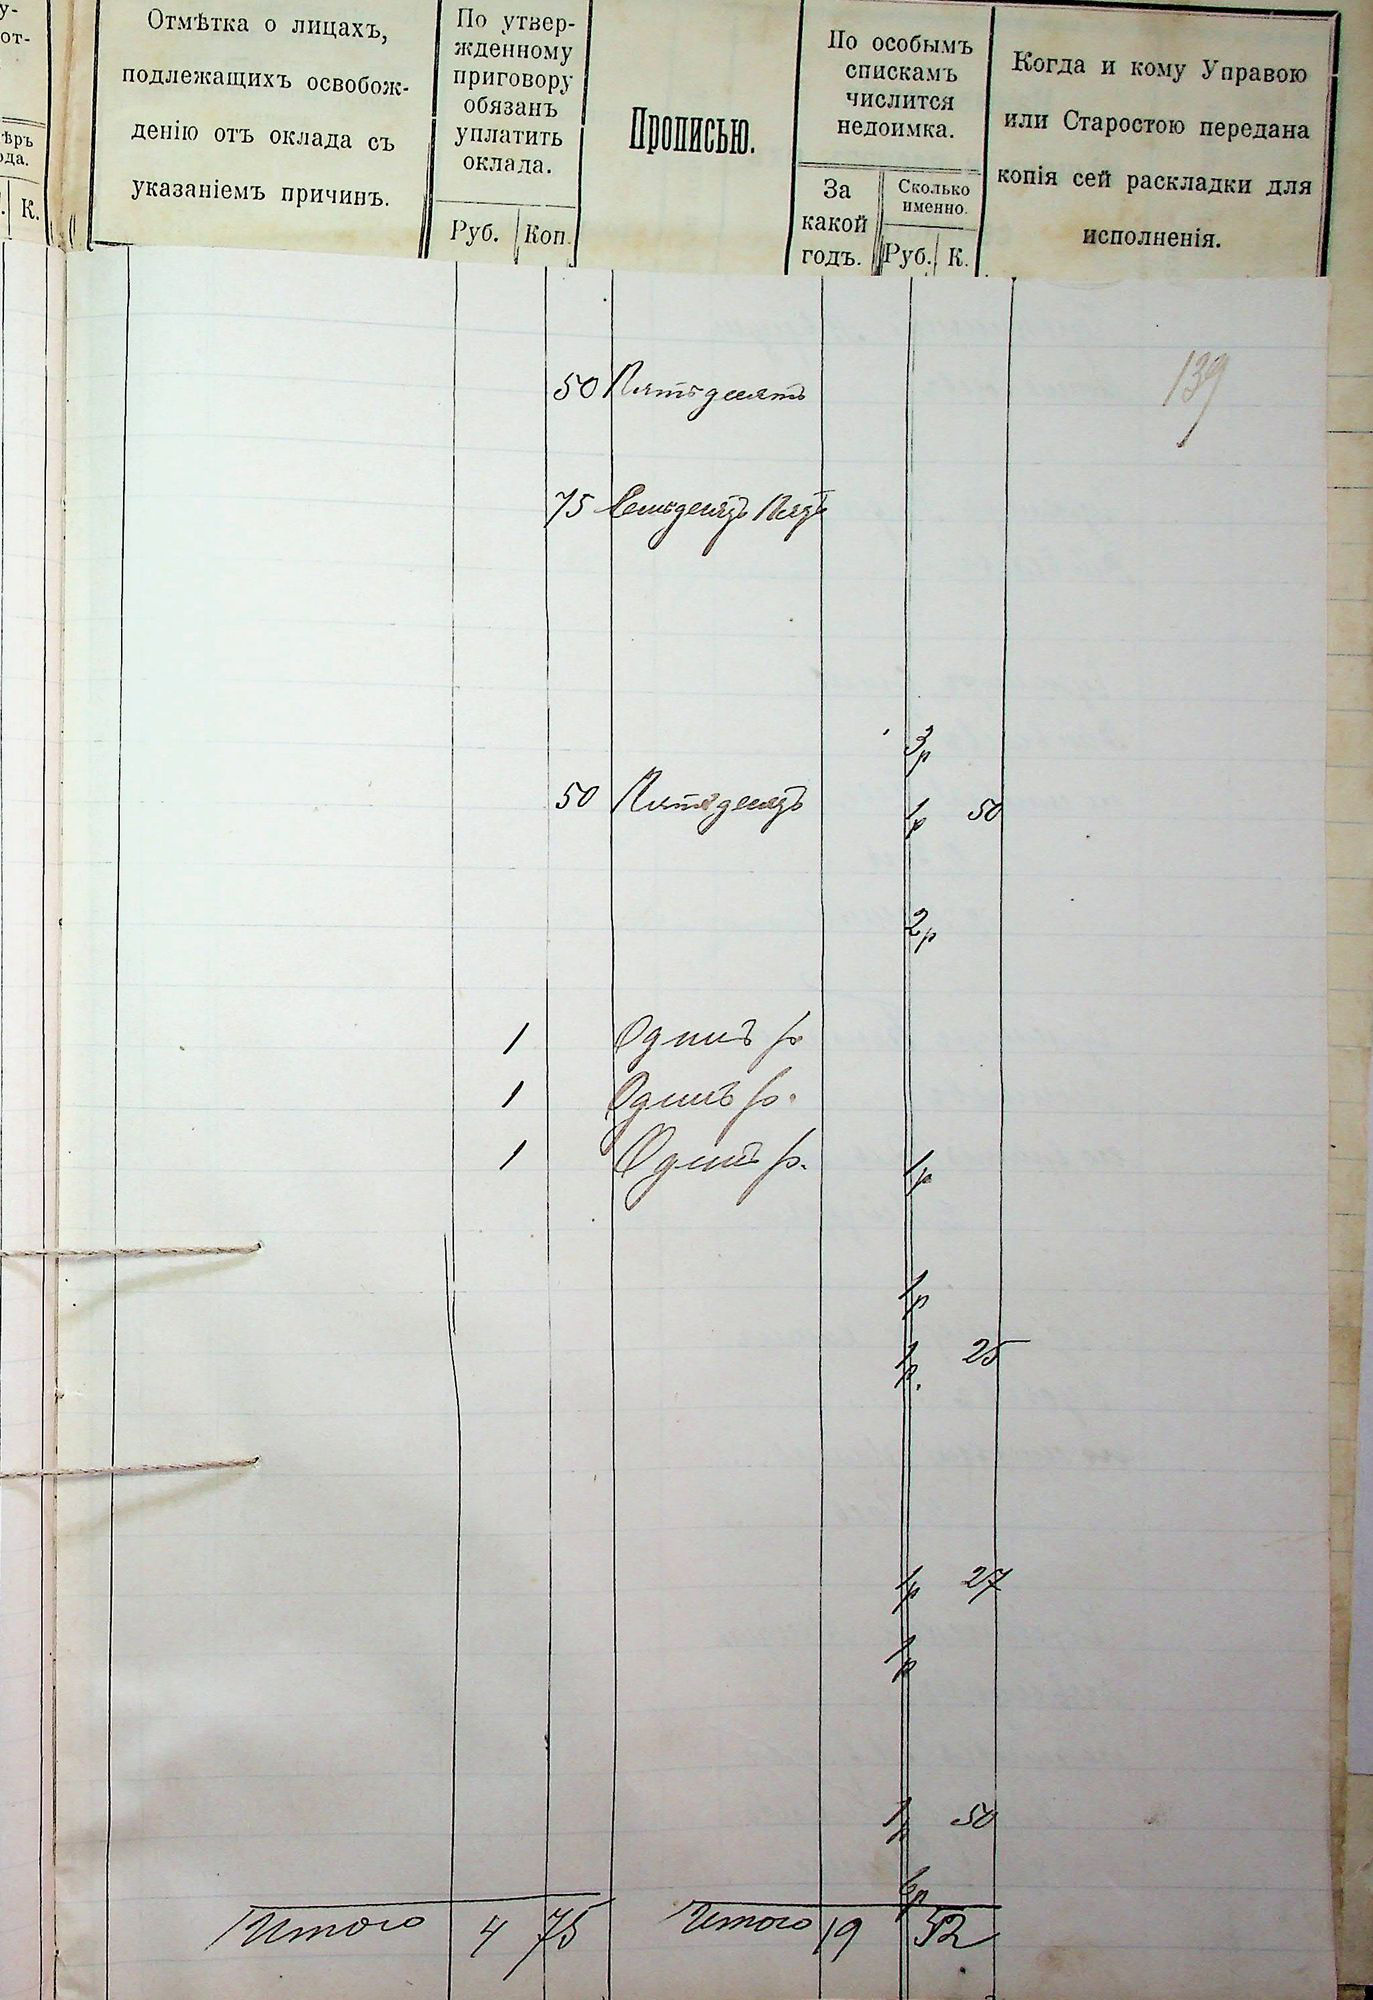 у-
от-
ѣръ
ода.
К.
Отмѣтка о лицахъ,
подлежащихъ освобож-
денію отъ оклада съ
указаніемъ причинъ.
По утвер-
жденному
приговору
обязанъ
уплатить
оклада.
Руб. Коп.
Прописью.
По особымъ
спискамъ
числится
недоимка.
За
какой
годъ.
Сколько
именно.
Руб. К.
Когда и кому Управою
или Старостою передана
копія сей раскладки для
исполненія.
139
50 Пятьдесятъ
75 Семьдесятъ Пять
3р
50 Пятьдесятъ 1р 50
2р
1 Одинъ р
1 Одинъ р.
1 Одинъ р. 1р
1р
1р. 25
1р 27
1р
1р 50
6р
Итого 4 75 Итого 19 52